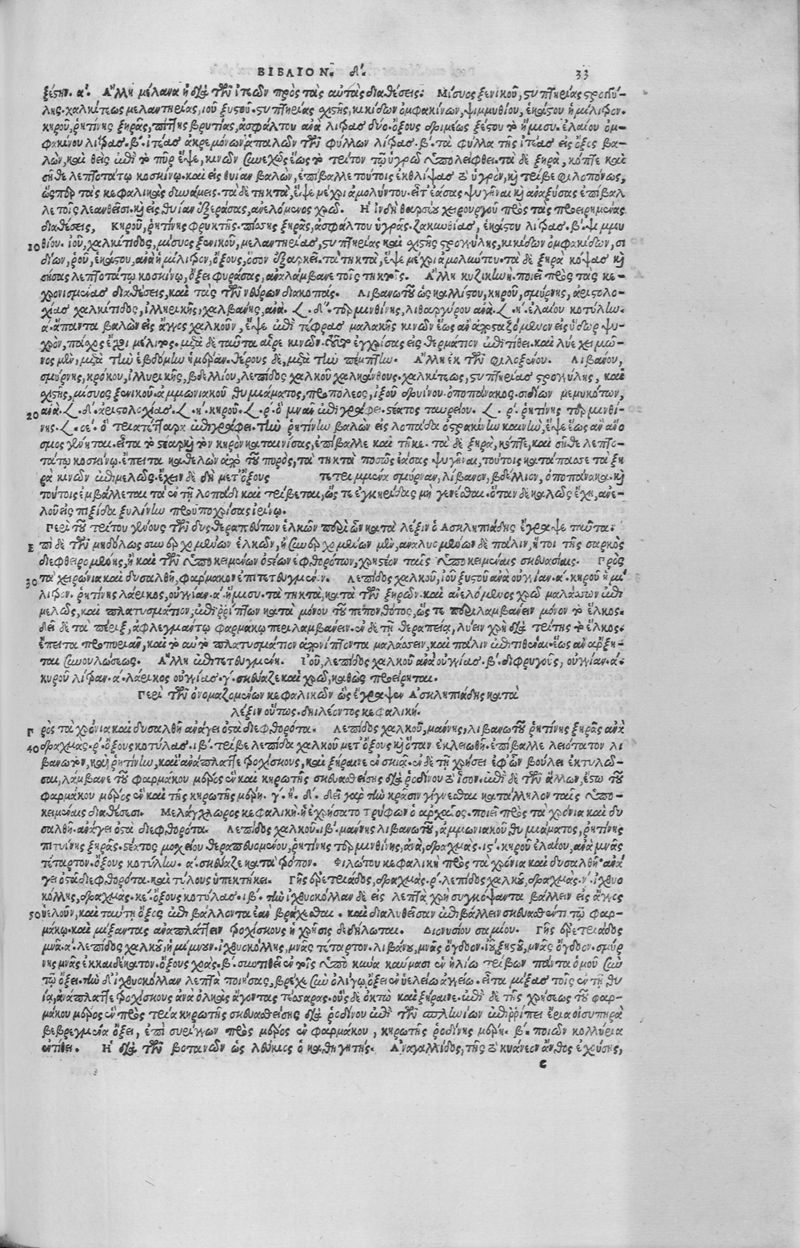 ΒΙΒΛΙΟΝ. Δ΄. 33
ξέςην. α΄. Ἄλλη μέλαινα ἡ διὰ τῶν ἰτεῶν πρὸς τὰς αὐτὰς διαθέσεις: Μίσυος ξενικοῦ, στυπτηρίας στρογγύ-
λης. χαλκίτεως μελαντηρίας, ἰοῦ ξυστοῦ. στυπτηρίας σχιστῆς, κικίδων ὀμφακίνων, ψιμμυθίου, ἑκάστου ἡμίλιτρον.
κηροῦ, ῥητίνης ξηρᾶς, πίττης βρυτίας, ἀσφάλτου ἀνὰ λίτρας δύο. ὄξους δριμέως ξέστου καὶ ἥμισυ. ἐλαίου ὀμ-
φακίνου λίτρας. β΄. ἰτέας ἀκρεμόνων ἁπαλῶν τῶν φύλλων λίτρας. β΄. τὰ φύλλα τῆς ἰτέας εἰς ὄξος βα-
λὼν, καὶ θεὶς ἐπὶ τὸ πῦρ ἕψε, κινῶν συνεχῶς ἕως τὸ τρίτον τῷ ὑγρῷ ὑπολειφθῇ. τὰ δὲ ξηρὰ, κόπτε καὶ
σῆθε λεπτοτάτῳ κοσκίνῳ. καὶ εἰς θυίαν βαλὼν, ἐπίβαλλε τούτοις ἐκθλίψας τὸ ὑγρόν, καὶ τρίβε φιλοπόνως,
ὥσπερ τὰς κεφαλικὰς δυνάμεις. τὰ δὲ τηκτὰ, ἕψε μέχρι ἀμολύντου. εἶτ' ἐάσας ψυγῆναι καὶ ἀναξύσας ἐπίβαλ
λε τοῖς λεανθεῖσι. καὶ εἰς θυίαν ἐξεράσας, ἀνελόμενος χρῶ. Ἡ ἰνδὴ θαρσέου χειρουργοῦ πρὸς τὰς προειρημένας
διαθέσεις, Κηροῦ, ῥητίνης φρυκτῆς. πίσσης ξηρᾶς, ἀσφάλτου ὑγρᾶς. ζακυνθίας, ἑκάστου λίτρας. β΄. ψιμμυ
10 θίου. ἰοῦ, χαλκίτιδος, μίσυος ξενικοῦ, μελαντηρίας, στυπτηρίας καὶ σχιστῆς στρογγύλης, κικίδων ὀμφακίδων, σι
δίων, ῥοῦ, ἑκάστου, ἀνὰ ἡμίλιτρον. ὄξους, ὅσον ἐξαρκεῖ. τὰ τηκτὰ, ἕψε μέχρι ἀμολύντου. τὰ δὲ ξηρὰ κόψας καὶ
σήσας λεπτοτάτῳ κοσκίνῳ, ὄξει φυράσας, ἀναλάμβανε τοῖς τηκτοῖς. Ἄλλη κυζικίων. ποιεῖ πρὸς τὰς κε-
χρονισμένας διαθέσεις, καὶ τὰς τῶν νεύρων διακοπάς. Λιβανωτοῦ ὡς καλλίστου, κηροῦ, σμύρνης, ἀριστολο-
χίας χαλκίτιδος, ἰλλυρικῆς, χαλβάνης, ἀνὰ. δ΄. τερμινθίνης, λιθαργύρου ἀνὰ. η΄. ἐλαίου κοτύλην.
α΄. ἅπαντα βαλὼν εἰς ἄγγος χαλκοῦν, ἕψε ἐπὶ τέφρας μαλακῆς κινῶν ἕως ἂν ἀποσταζόμενον εἰς ὕδωρ ψυ-
χρὸν, πάχος ἔχῃ μέλιτος. μετὰ δὲ ταῦτα αἶρε κινῶν. τοῦτο ἐγχρίσας εἰς δερμάτιον ἐπιτίθει. καὶ λύε χειμῶ-
νος μὲν, μετὰ τὴν ἑβδόμην ἡμέραν. θέρους δὲ, μετὰ τὴν πέμπτην. Ἄλλη ἐκ τῶν φιλοξένου. Λιβάνου,
σμύρνης, κρόκου, ἰλλυρικῆς, βδελλίου, λεπίδος χαλκοῦ χαλκάνθους. χαλκίτεως, στυπτηρίας στρογγύλης, καὶ
σχιστῆς, μίσυος ξενικοῦ. ἀμμωνιακοῦ θυμιάματος, προπόλεος, ἰξοῦ δρυΐνου. ὀποπάνακος. σιδίων μεμυκότων,
20 ἀνὰ. δ΄. ἀριστολοχίας. η΄. κηροῦ. ρ΄. ὁ μνᾶν ἐπιγράφει. στέατος ταυρείου. ρ΄. ῥητίνης τερμινθί-
νης. σε΄. ὁ τετάρτην ἐπιγράφει. τὴν ῥητίνην βαλὼν εἰς λοπάδα ὀστρακίνην καινὴν, ἕψε ἕως ἂν ἄνο
σμος γένηται. εἶτα τὸ στέαρ καὶ τὸν κηρὸν καταινίσας, ἐπίβαλλε καὶ τῆκε. τὰ δὲ ξηρὰ, κόπτε, καὶ σῆθε λεπτο-
τάτῳ κοσκίνῳ. ἔπειτα καθελὼν ἀπὸ τοῦ πυρὸς, τὰ τηκτὰ ποσῶς ἐάσας ψυγῆναι, τούτοις κατάπασσε τὰ ξη
ρὰ κινῶν ἐπιμελῶς. ἔχειν δὲ δεῖ μετ' ὄξους τετριμμένα σμύρναν, λίβανον, βδέλλιον, ὀποπάνακα. καὶ
τούτοις ἐμβάλλεται τὰ ἐν τῇ λοπάδι καὶ τρίβεται, ὥστε ἐγκηρίδας μὴ γενέσθαι. ὅταν δὲ καλῶς ἔχῃ, ἀνε-
λοῦ εἰς πυξίδα ξυλίνην προϋποχρίσας ἰρίνῳ.
Περὶ τοῦ τρίτου γένους τῶν δυσθεραπεύτων ἑλκῶν περὶ ὧν κατὰ λέξιν ὁ Ἀσκληπιάδης ἔγραψε ταῦτα.
Ἐπὶ δὲ τῶν μηδόλως συνουλουμένων ἑλκῶν, ἢ συνουλουμένων μὲν, ἀναλυομένων δὲ πάλιν, ἤτοι τῆς σαρκὸς
διεφθειρομένης, ἢ καὶ τῶν ὑποκειμένων ὀστέων ἐφθορότων, χρηστέον ταῖς ὑποκειμέναις σκευασίαις. Πρὸς
30 τὰ χειρώνια καὶ δυσαλθῆ, φάρμακον ἐπιτετευγμένον. Λεπίδος χαλκοῦ, ἰοῦ ξυστοῦ ἀνὰ οὐγγίαν. α΄. κηροῦ ἡμί
λιτρον. ῥητίνης λάρικος, οὐγγίαν. α΄. ἥμισυ. τὰ τηκτὰ, κατὰ τῶν ξηρῶν. καὶ ἀνελόμενος χρῶ μαλάσσων ἐπι
μελῶς, καὶ πλατυσμάτιον, ἐπιρρίπτων κατὰ μόνου τοῦ πεπονθότος, ὥστε περιλαμβάνειν μόνον τὸ ἕλκος.
δεῖ δὲ τὰ πέριξ, ἀφλεγμάντῳ φαρμάκῳ περιλαμβάνειν. ἐν δὲ τῇ θεραπείᾳ, λύειν χρὴ διὰ τρίτης τὸ ἕλκος.
ἔπειτα προπυριᾶν, καὶ τὸ αὐτὸ πλατυσμάτιον ἀπονίπτοντα μαλάσσειν, καὶ πάλιν ἐπιτιθέναι. ἕως ἂν ἄρξη-
ται συνουλώσεως. Ἄλλη ἐπιτετευγμένη. Ἰοῦ, λεπίδος χαλκοῦ ἀνὰ οὐγγίας. β΄. διφρυγοῦς, οὐγγίαν. α΄.
κηροῦ λίτραν. α΄. λάρικος οὐγγίας. γ΄. σκεύαζε καὶ χρῶ, καθὼς προείρηται.
Περὶ τῶν ὀνομαζομένων κεφαλικῶν ὡς ἔγραψεν Ἀσκληπιάδης κατὰ
λέξιν οὕτως. δηιλέοντος κεφαλική.
Πρὸς τὰ χρόνια καὶ δυσαλθῆ ἀνάγει ὀστᾶ διεφθορότα. Λεπίδος χαλκοῦ, μάννης, λιβανωτοῦ ῥητίνης ξηρᾶς ἀνὰ
40 δραχμὰς. ρ΄. ὄξους κοτύλας. ιβ΄. τρίβε λεπίδα χαλκοῦ μετ' ὄξους καὶ ὅταν ἐκλειωθῇ. ἐπίβαλλε λειότατον λι
βανωτὸν, καὶ ῥητίνην, καὶ ἀνάπλαττε τροχίσκους, καὶ ξήραινε ἐν σκιᾷ. ἐν δὲ τῇ χρήσει ἐφ' ὧν βούλει ἐκτυλῶ-
σαι, λάμβανε τοῦ φαρμάκου μέρος ἓν καὶ κηρωτῆς σκευασθείσης διὰ ῥοδίνου τὸ ἴσον. ἐπὶ δὲ τῶν ἄλλων, ἔστω τοῦ
φαρμάκου μέρος ἓν καὶ τῆς κηρωτῆς μέρη. γ΄. ἢ. δ΄. δεῖ γὰρ τὴν κρᾶσιν γίγνεσθαι κατάλληλον ταῖς ὑπο-
κειμέναις διαθέσεσι. Μελάγχλωρος κεφαλικὴ ᾗ ἐχρήσατο τρύφων ὁ ἀρχαῖος. ποιεῖ πρὸς τὰ χρόνια καὶ δυ
σαλθῆ. ἀνάγει ὀστᾶ διεφθορότα. Λεπίδος χαλκοῦ. ιβ΄. μάννης λιβανωτοῦ, ἀμμωνιακοῦ θυμιάματος, ῥητίνης
πιτυΐνης ξηρᾶς. στέατος μοσχείου θεραπευομένου, ῥητίνης τερμινθίνης, ἀνὰ, δραχμὰς. ις΄. κηροῦ ἐλαίου, ἀνὰ μνᾶς
τέταρτον. ὄξους κοτύλην. α΄. σκεύαζε κατὰ τρόπον. Φιλώτου κεφαλικὴ πρὸς τὰ χρόνια καὶ δυσαλθῆ. ἀνά
γει ὀστᾶ διεφθορότα. καὶ τύλους ὑπεκτήκει. Γῆς ἐρετριάδος, δραχμὰς. ρ΄. λεπίδος χαλκοῦ, δραχμὰς. ν΄. ἰχθυο
κόλλης, δραχμὰς. κε΄. ὄξους κοτύλας. ιβ΄. τὴν ἰχθυοκόλλαν δεῖ εἰς λεπτὰ χρὴ συγκόψαντα βάλλειν εἰς ἄγγος
50 ὑελοῦν, καὶ ταύτῃ ὄξος ἐπιβάλλοντα ἐᾶν βρέχεσθαι. καὶ διαλυθεῖσαν ἐπιβάλλειν σκευασθέντι τῷ φαρ-
μάκῳ. καὶ μίξαντας ἀναπλάττειν τροχίσκους ἡ χρῆσις δεδήλωται. Διονυσίου σαμίου. Γῆς ἐρετριάδος
μνᾶ. α΄. λεπίδος χαλκοῦ, ἡμίμνουν. ἰχθυοκόλλης, μνᾶς τέταρτον. λιβάνου, μνᾶς ὄγδοον. ἰοῦ ξυστοῦ, μνᾶς ὄγδοον. σμύρ
νης μνᾶς ἑκκαιδέκατον. ὄξους χοᾶς. β΄. σκευασθὲν ἐν τοῖς ὑπὸ κύνα καύμασι ἐν ἡλίῳ τρίβων πάντα ὁμοῦ σὺν
τῷ ὄξει. τὴν δὲ ἰχθυοκόλλαν λεπτὰ ποιήσας, βρέχε σὺν ὀλίγῳ ὄξει ἐν ὑελείῳ ἀγγείῳ. εἶτα μίξας τοῖς ἐν τῇ θυ
ίᾳ, ἀνάπλαττε τροχίσκους ἀνὰ ὁλκῆς ἄγοντας τέσσαρας. οὓς δὲ ὀκτὼ καὶ ξήραινε. ἐπὶ δὲ τῆς χρήσεως τοῦ φαρ-
μάκου μέρος ἓν πρὸς τρία κηρωτῆς σκευασθείσης διὰ ῥοδίνου ἐπὶ τῶν πλείστων ἐπιρρίπτει ἔρια οἰσυπηρὰ
βεβρεγμένα ὄξει, ἐπὶ συρίγγων πρὸς μέρος ἓν φαρμάκου, κηρωτῆς ῥοδίνης μέρη. β΄. ποιῶν κολλύρια
ἐντίθει. Ἡ διὰ τῶν βοτανῶν ὡς λεύκιος ὁ καθηγητής. Ἀναγαλλίδος, τῆς τὸ κυάνεον ἄνθος ἐχούσης,
c